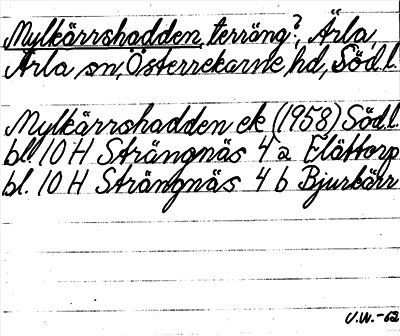 Mylkärrshadden, terräng?, Ärla,
Ärla sn, Österrekarne hd, Södl.
Mylkärrshadden ek (1958) Södl.
bl. 10 H Strängnäs 4 a Flättorp
bl. 10 H Strängnäs 4 b Bjurkärr
V.W.-62